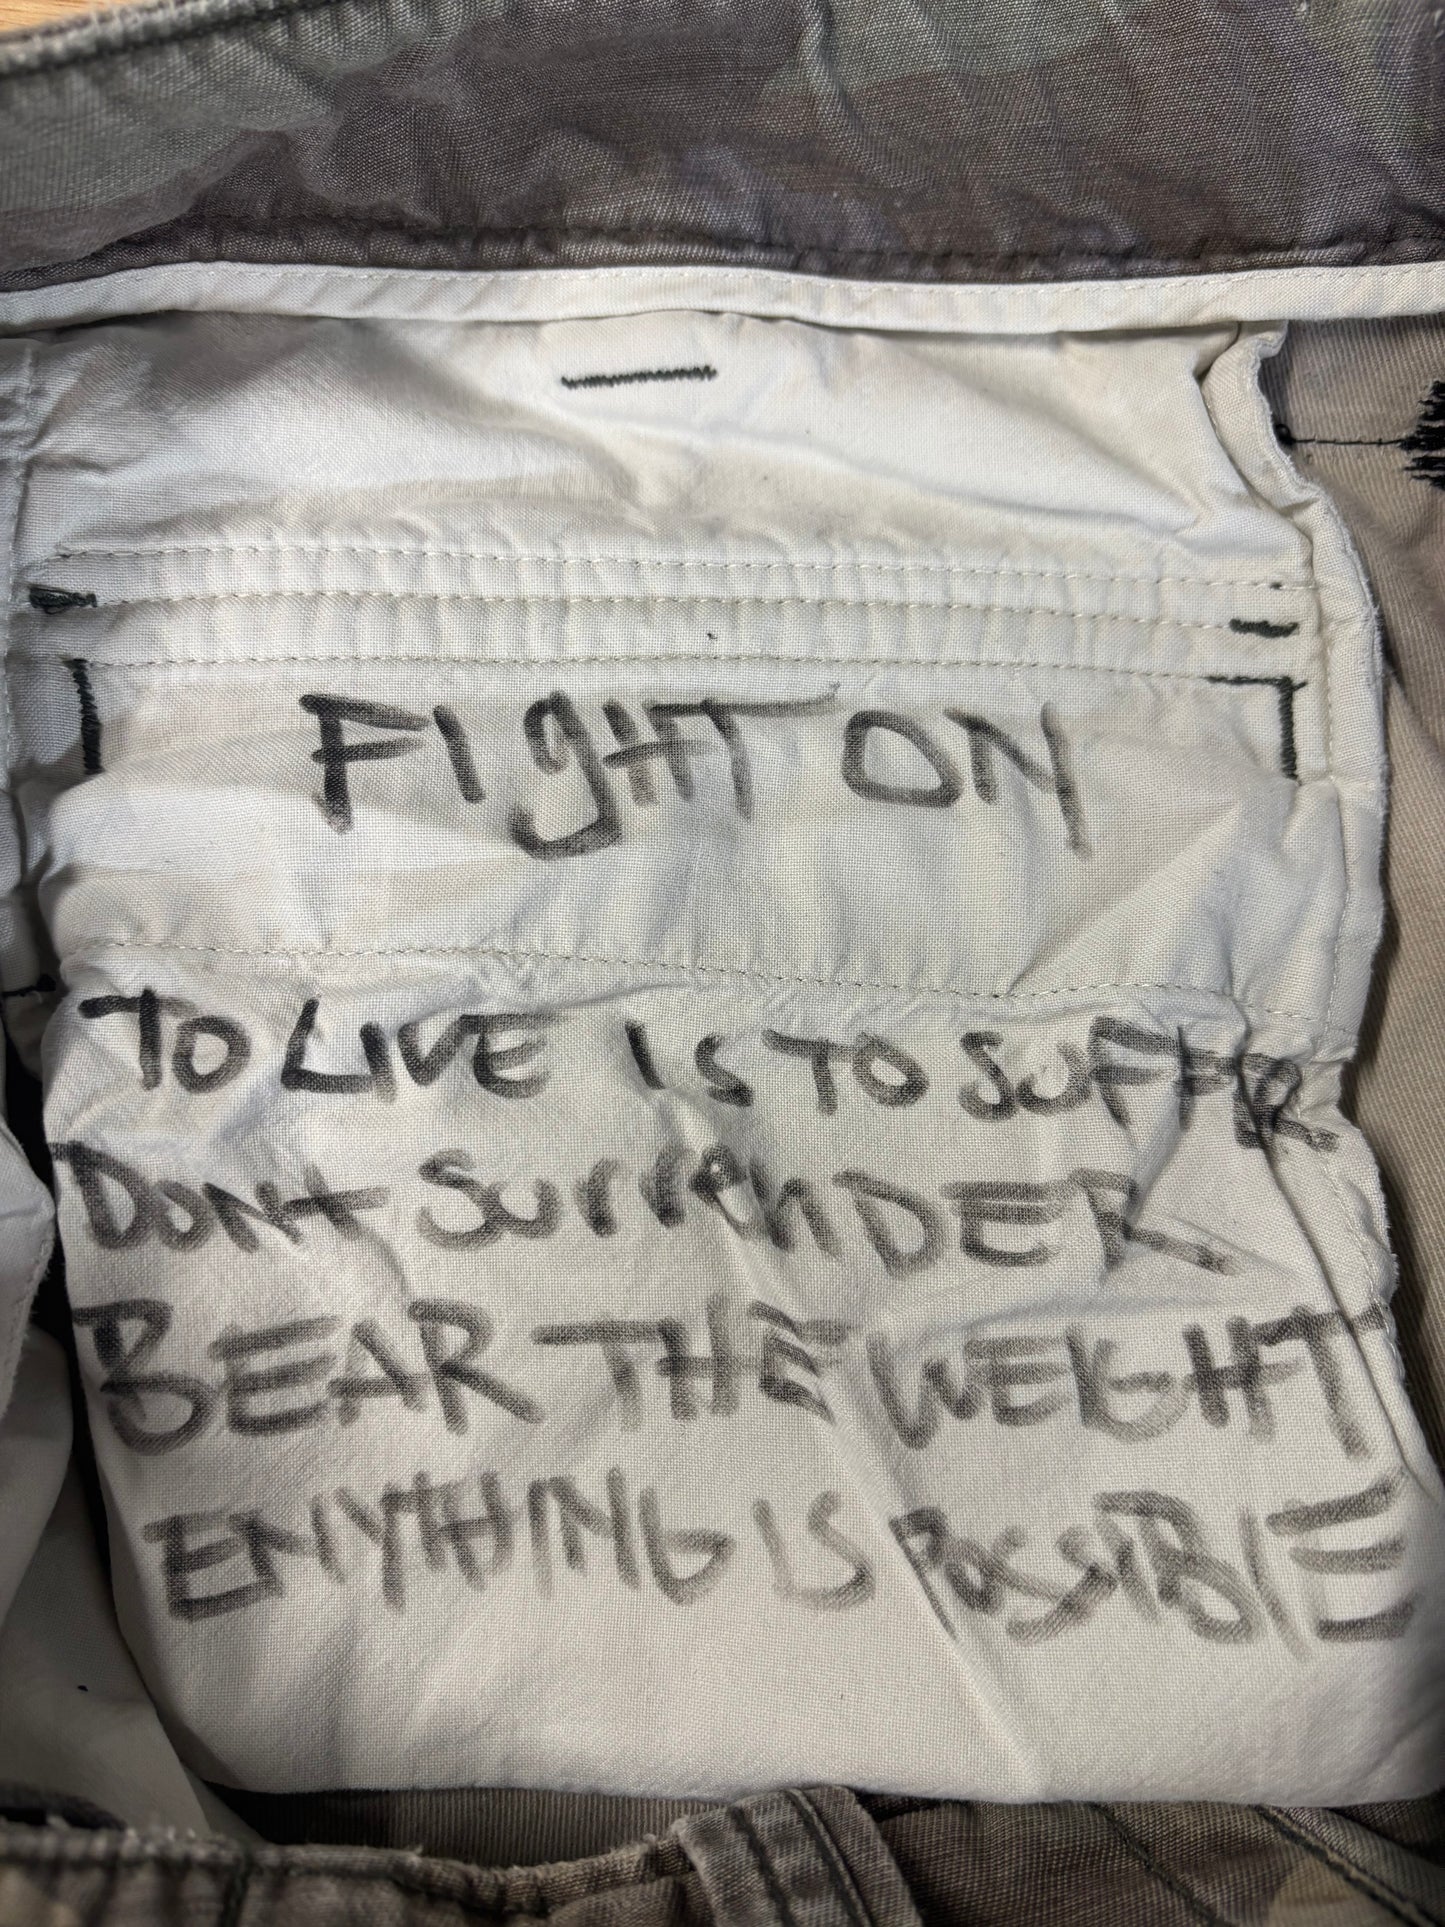 FIgHT ON
TO LIVE IS TO SUFFER
DONt SurrenDER
BEAR THE WEIGHT
ENYTHING IS POSSIBlE